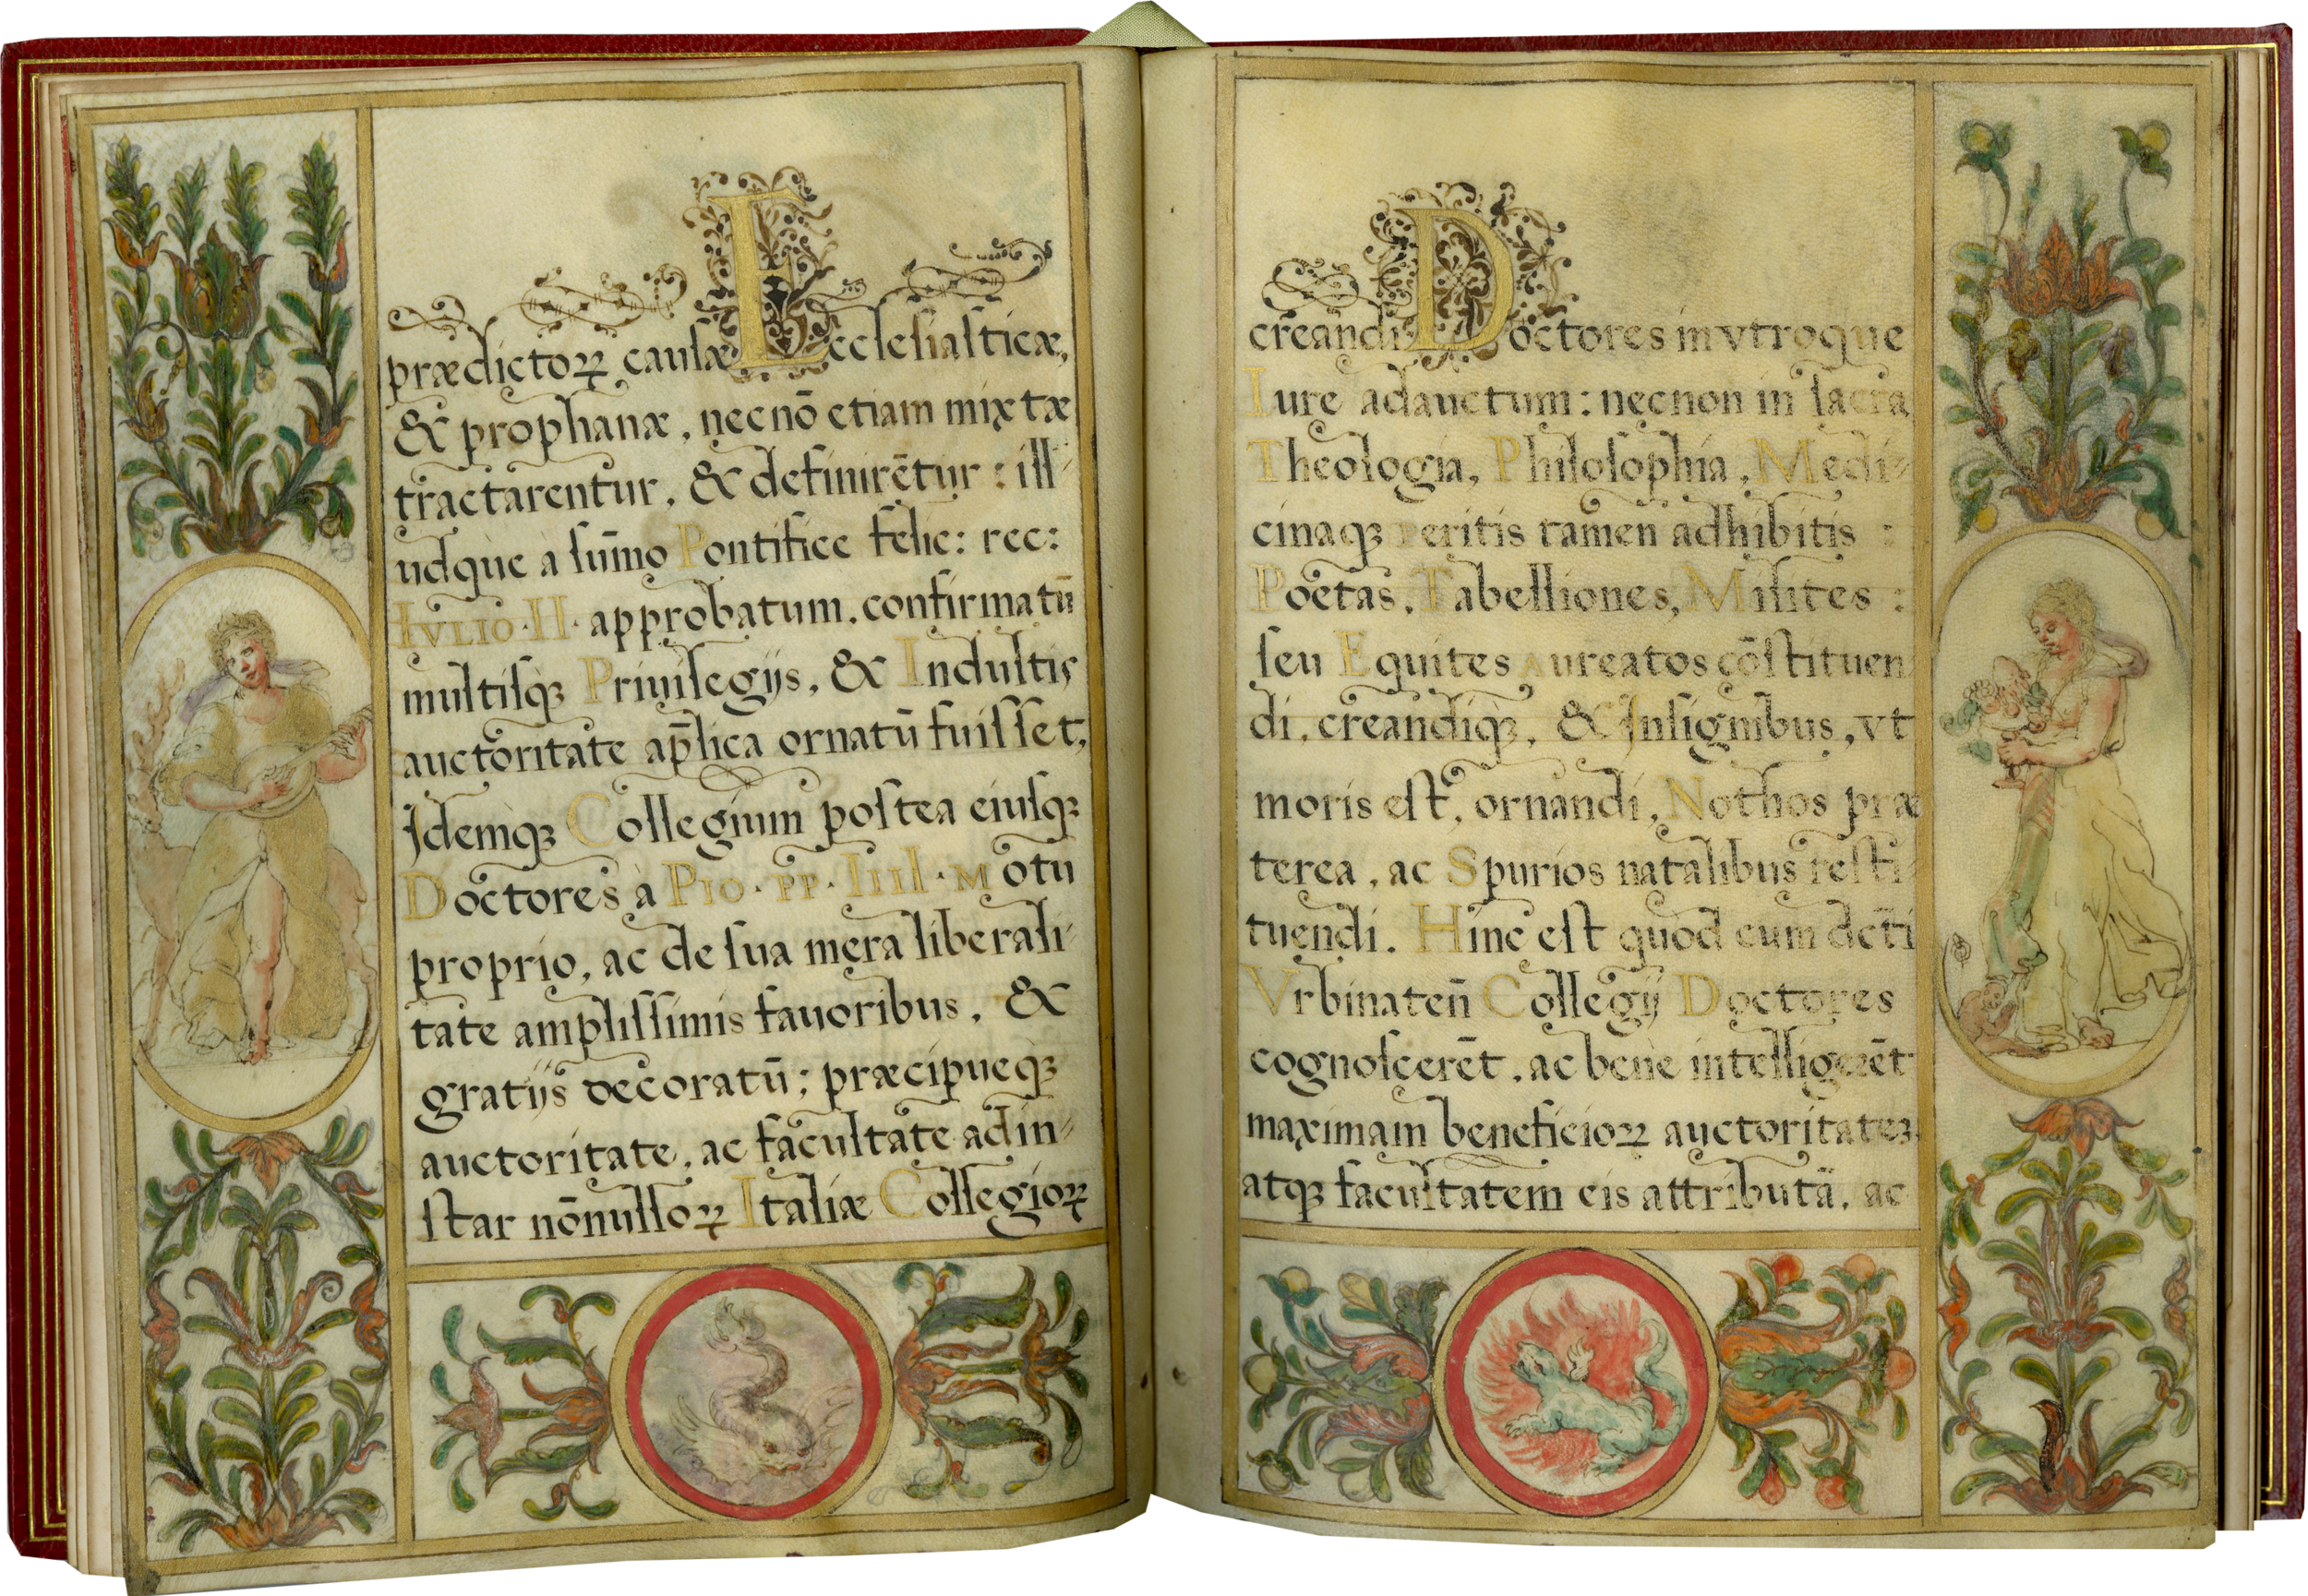 prædictoꝝ causæ Ecclesiasticæ,
& prophanæ, necnō etiam mixtæ
tractarentur, & definirētur: ill-
udque à sum̄o Pontifice felic: rec:
IVLIO·II· approbatum, confirmatū
multisqꝫ Priuilegijs, & Indultis
auctoritate ap̄lica ornatū fuisset,
Idemqꝫ Collegium postea eiusqꝫ
Doctores à PIO·PP·IIII·Motu
proprio, ac de sua mera liberali-
tate amplissimis fauoribus, &
gratijs decoratū; præcipueqꝫ
auctoritate, ac facultate ad in-
star nōnulloꝝ Italiæ Collegioꝝ
creandi Doctores in vtroque
Iure adauctum: necnon in sacra
Theologia, Philosophia, Medi-
cinaqꝫ peritis tamen adhibitis:
Poetas, Tabelliones, Milites:
seu Equites Aureatos cōstituen
di, creandiqꝫ, & Insignibus, vt
moris est, ornandi, Nothos præ
terea, ac Spurios natalibus resti-
tuendi. Hinc est quod cum dc̄ti
Vrbinaten̄ Collegij Doctores
cognoscerēt, ac bene intelligerēt
maximam beneficioꝝ auctoritateꝫ,
atqꝫ facultatem eis attributā, ac